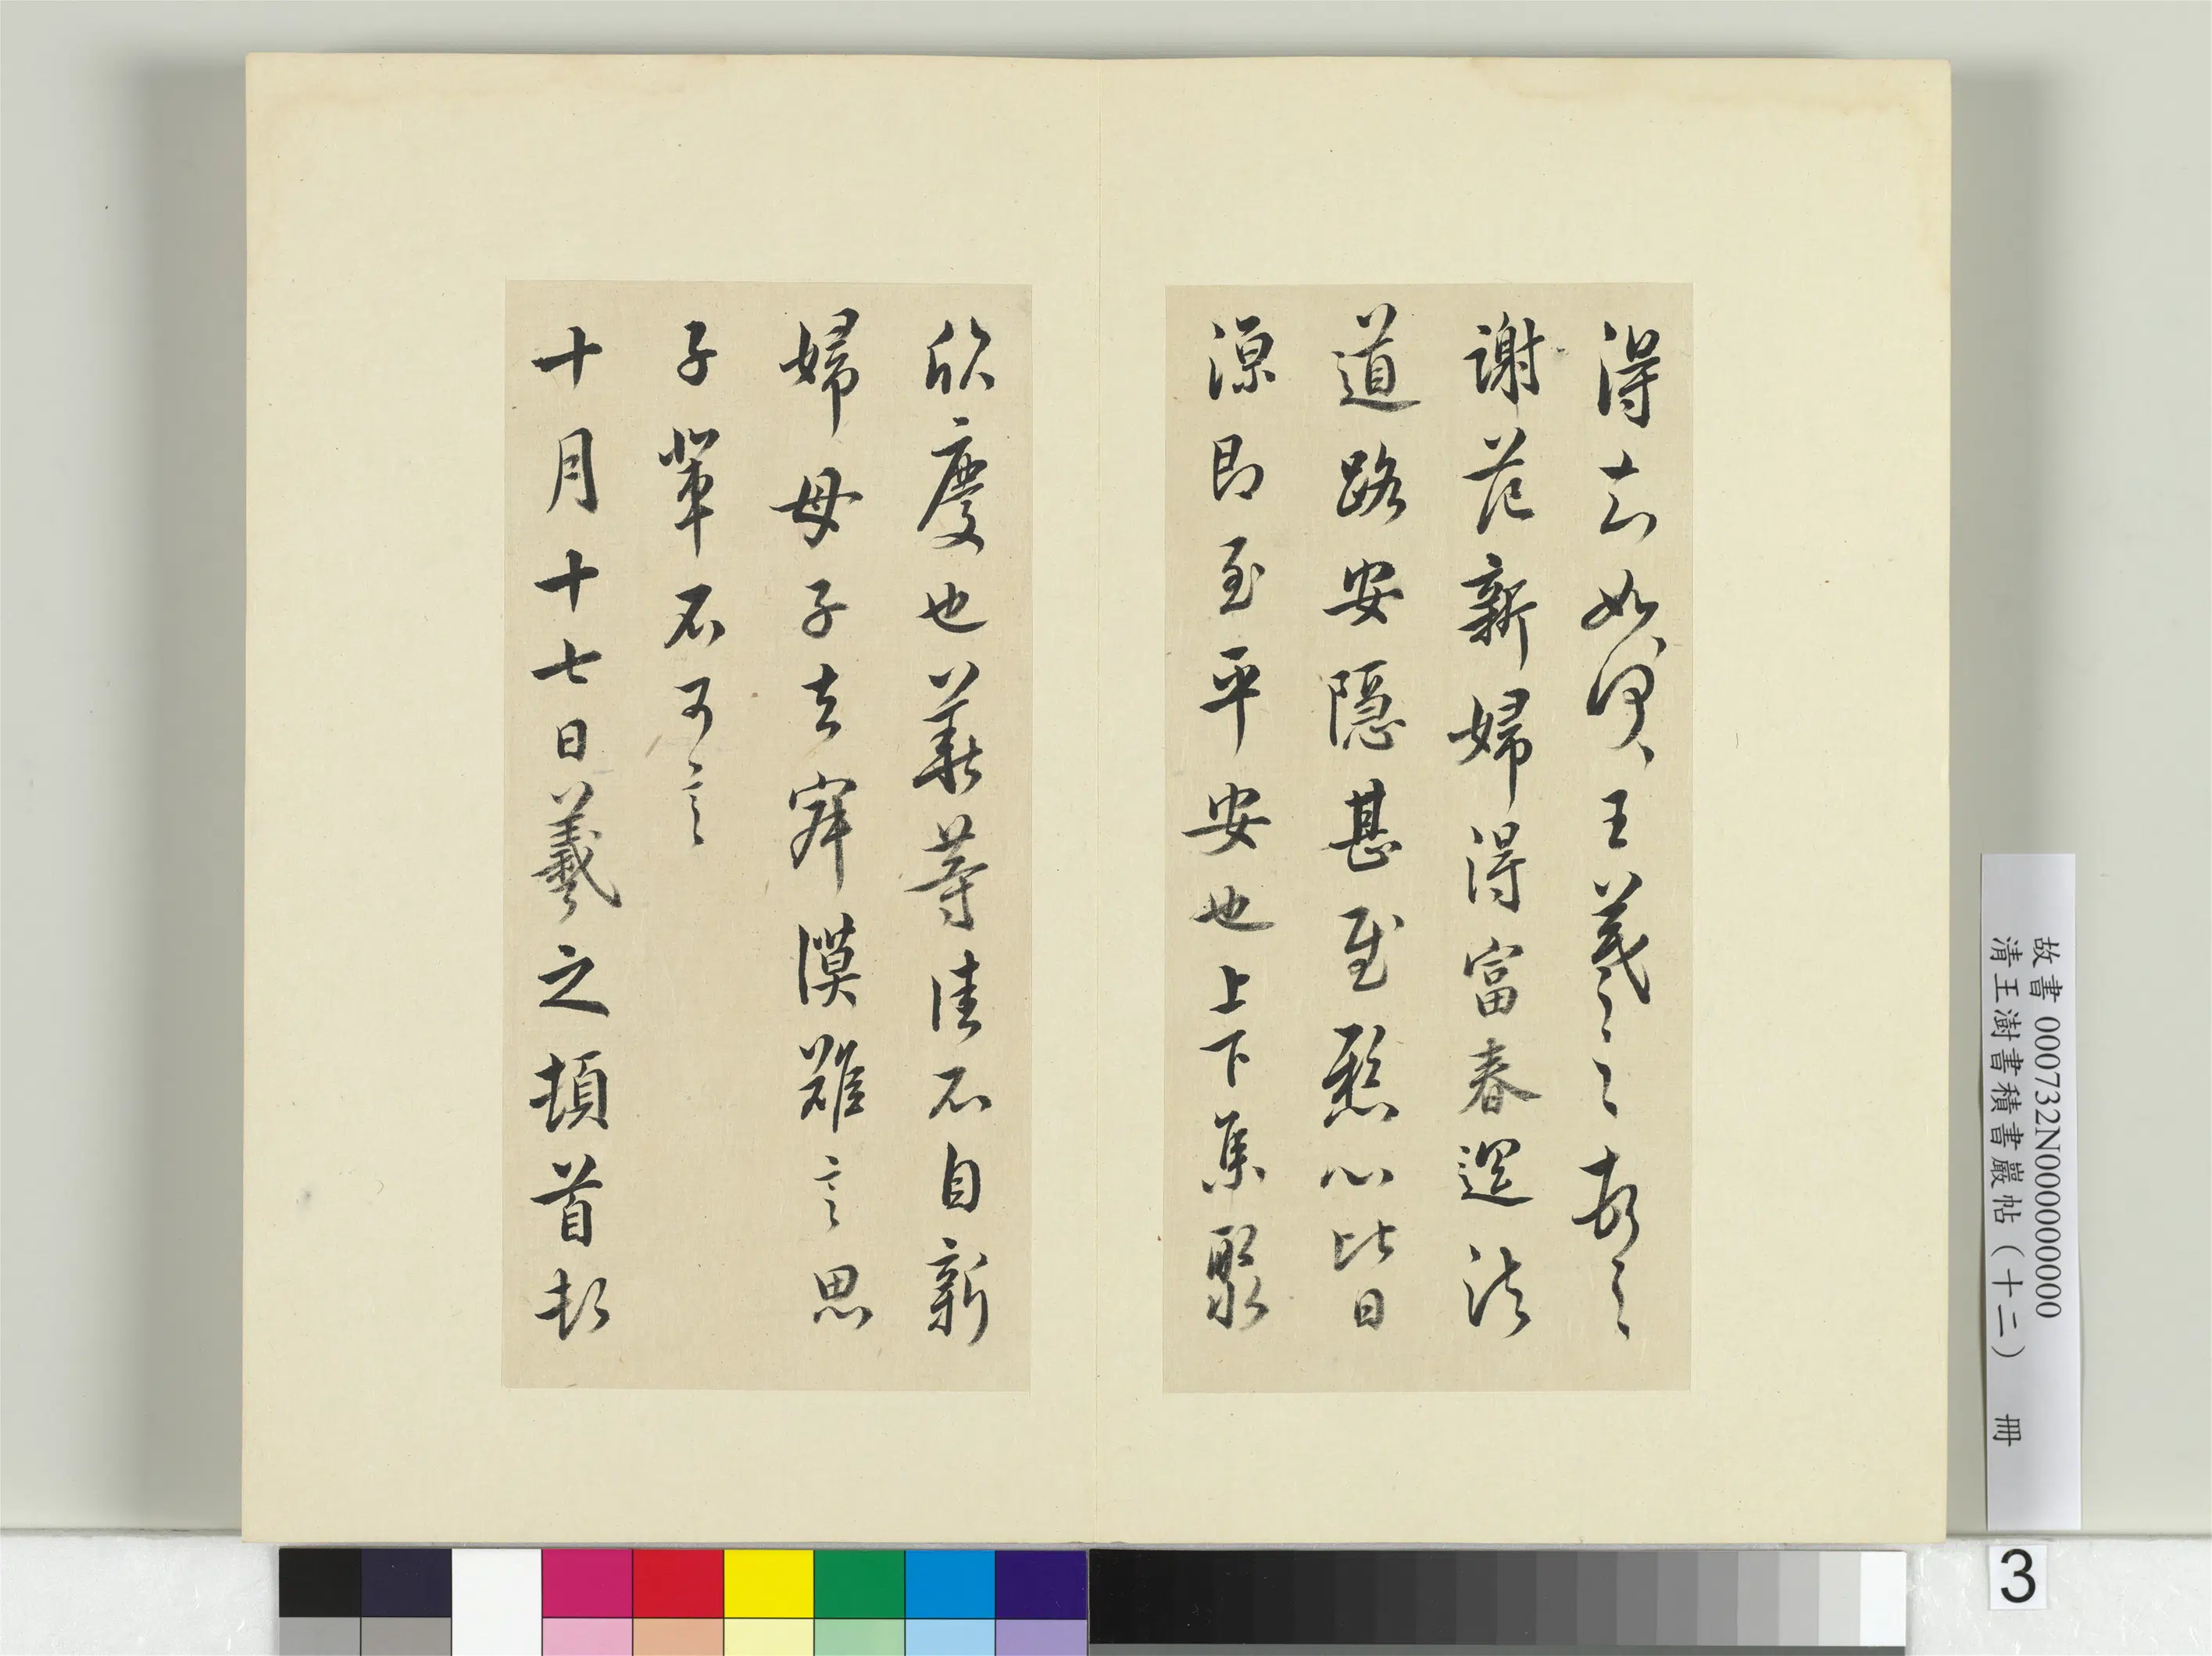 得去如何王羲之敬之
謝范新婦得富春還諸
道路安隱甚慰懸心比日
源即至平安也上下集聚
欣慶也羲等佳不自新
婦母子去寂漠難言思
子輩不可言
十月十七日羲之頓首頓
故書 000732N000000000
清王澍書積書巖帖（十二） 冊
3